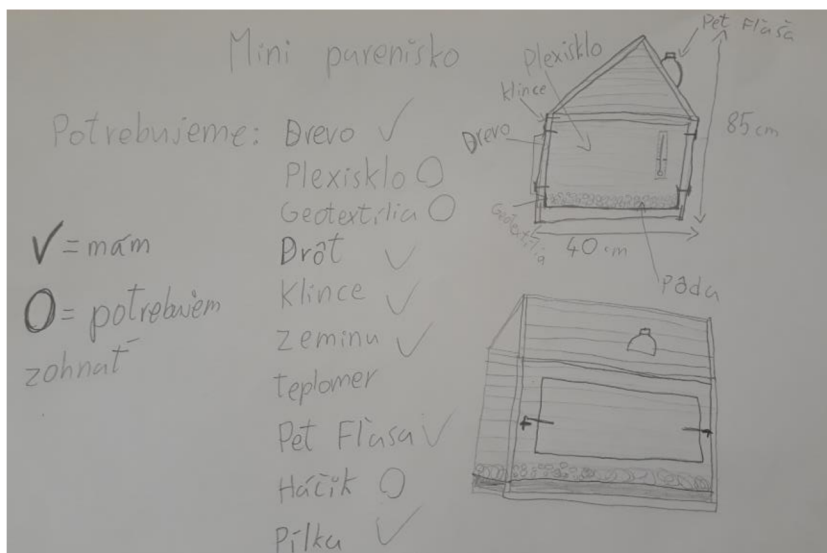 Mini parenisko
Potrebujeme: Drevo ✓
Plexisklo O
Geotextília O
Drôt ✓
Klince ✓
Zeminu ✓
teplomer
Pet Fľaša ✓
Háčik O
Pílku ✓
✓ = mám
O = potrebujem
zohnať
Pet Fľaša
Plexisklo
Klince
Drevo
Geotextília
85 cm
40 cm
Pôda